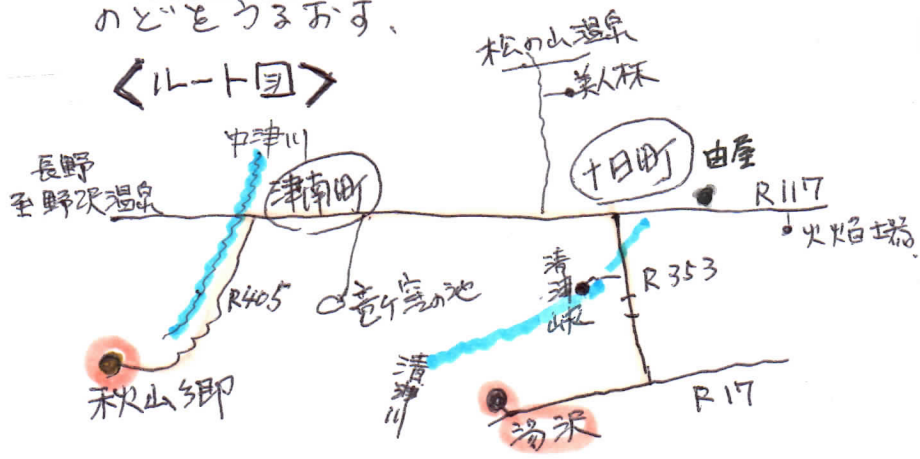 のどをうるおす、
<ルート図>
松の山温泉
美人林
中津川
長野
至野沢温泉
津南町
十日町
由屋
R117
火焔土器
R405
竜ケ窪の池
清津峡
R353
秋山郷
清津川
湯沢
R17